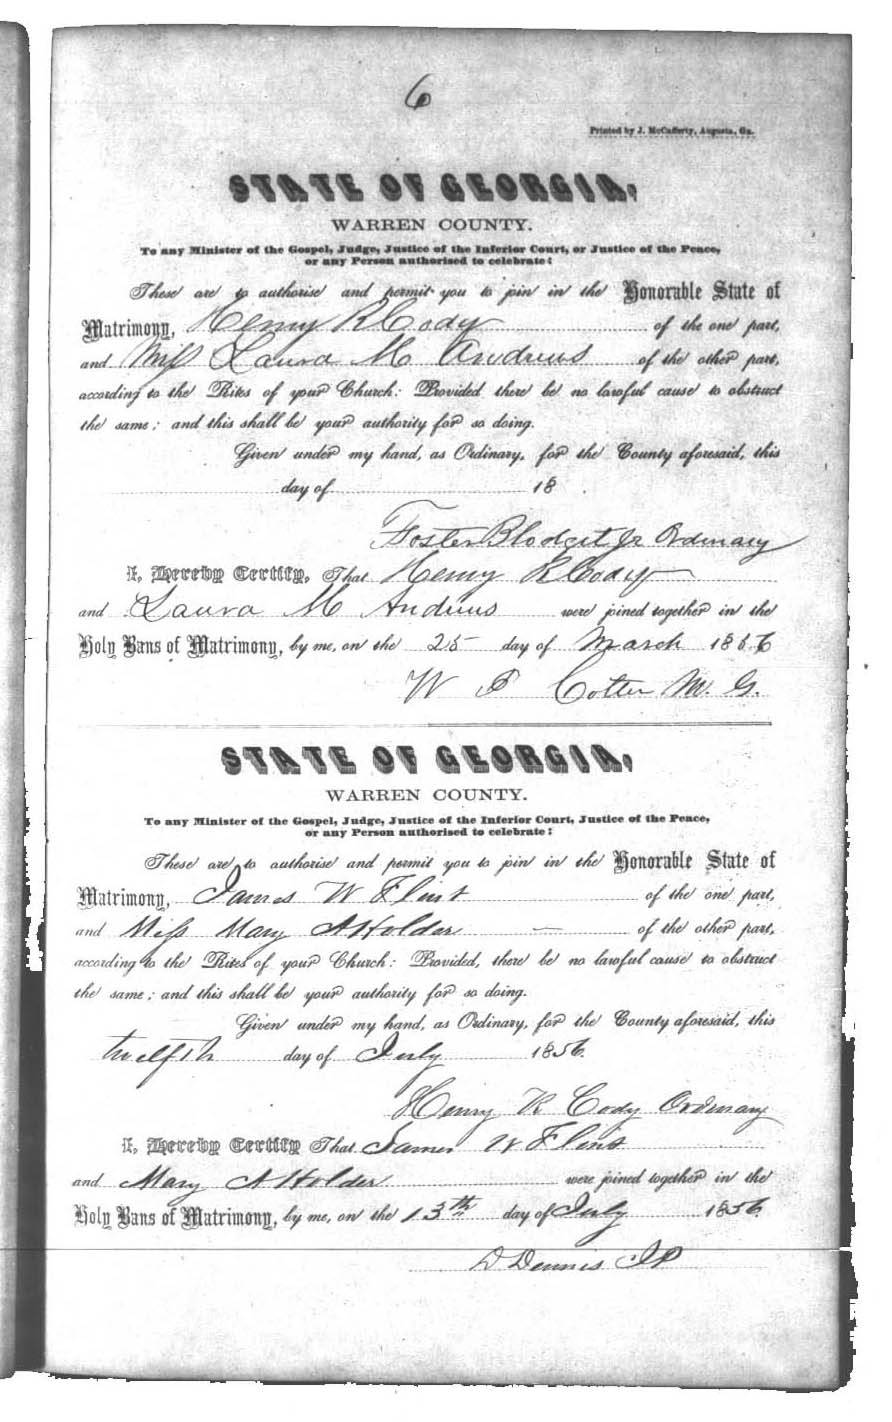 6
Printed by J. McCafferty, Augusta, Ga.
STATE OF GEORGIA,
WARREN COUNTY.
To any Minister of the Gospel, Judge, Justice of the Inferior Court, or Justice of the Peace,
or any Person authorised to celebrate:
These are to authorise and permit you to join in the Honorable State of
Matrimony, Henry R Cody of the one part,
and Miss Laura M Andrews of the other part,
according to the Rites of your Church: Provided there be no lawful cause to obstruct
the same; and this shall be your authority for so doing.
Given under my hand, as Ordinary, for the County aforesaid, this
day of 18
Foster Blodget Jr Ordinary
I, Hereby Certify, That Henry R Cody
and Laura M Andrews were joined together in the
Holy Bans of Matrimony, by me, on the 25 day of March 1856
W P Cotter M. G.
STATE OF GEORGIA,
WARREN COUNTY.
To any Minister of the Gospel, Judge, Justice of the Inferior Court, Justice of the Peace,
or any Person authorised to celebrate:
These are to authorise and permit you to join in the Honorable State of
Matrimony, James W Flint of the one part,
and Miss Mary A Holder — of the other part,
according to the Rites of your Church: Provided, there be no lawful cause to obstruct
the same; and this shall be your authority for so doing.
Given under my hand, as Ordinary, for the County aforesaid, this
twelfth day of July 1856
Henry R Cody Ordinary
I, Hereby Certify That James W Flint
and Mary A Holder were joined together in the
Holy Bans of Matrimony, by me, on the 13th day of July 1856
D Dennis JP